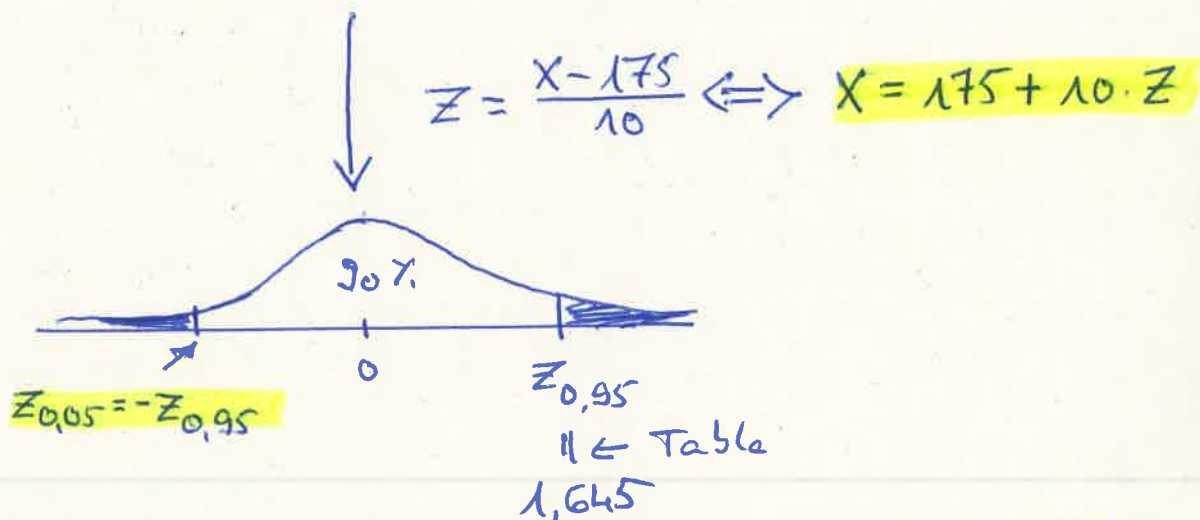 Z = (X - 175)/10 <=> X = 175 + 10 · Z
90 %
0
Z0,95
Z0,05 = -Z0,95
|| ← Table
1,645